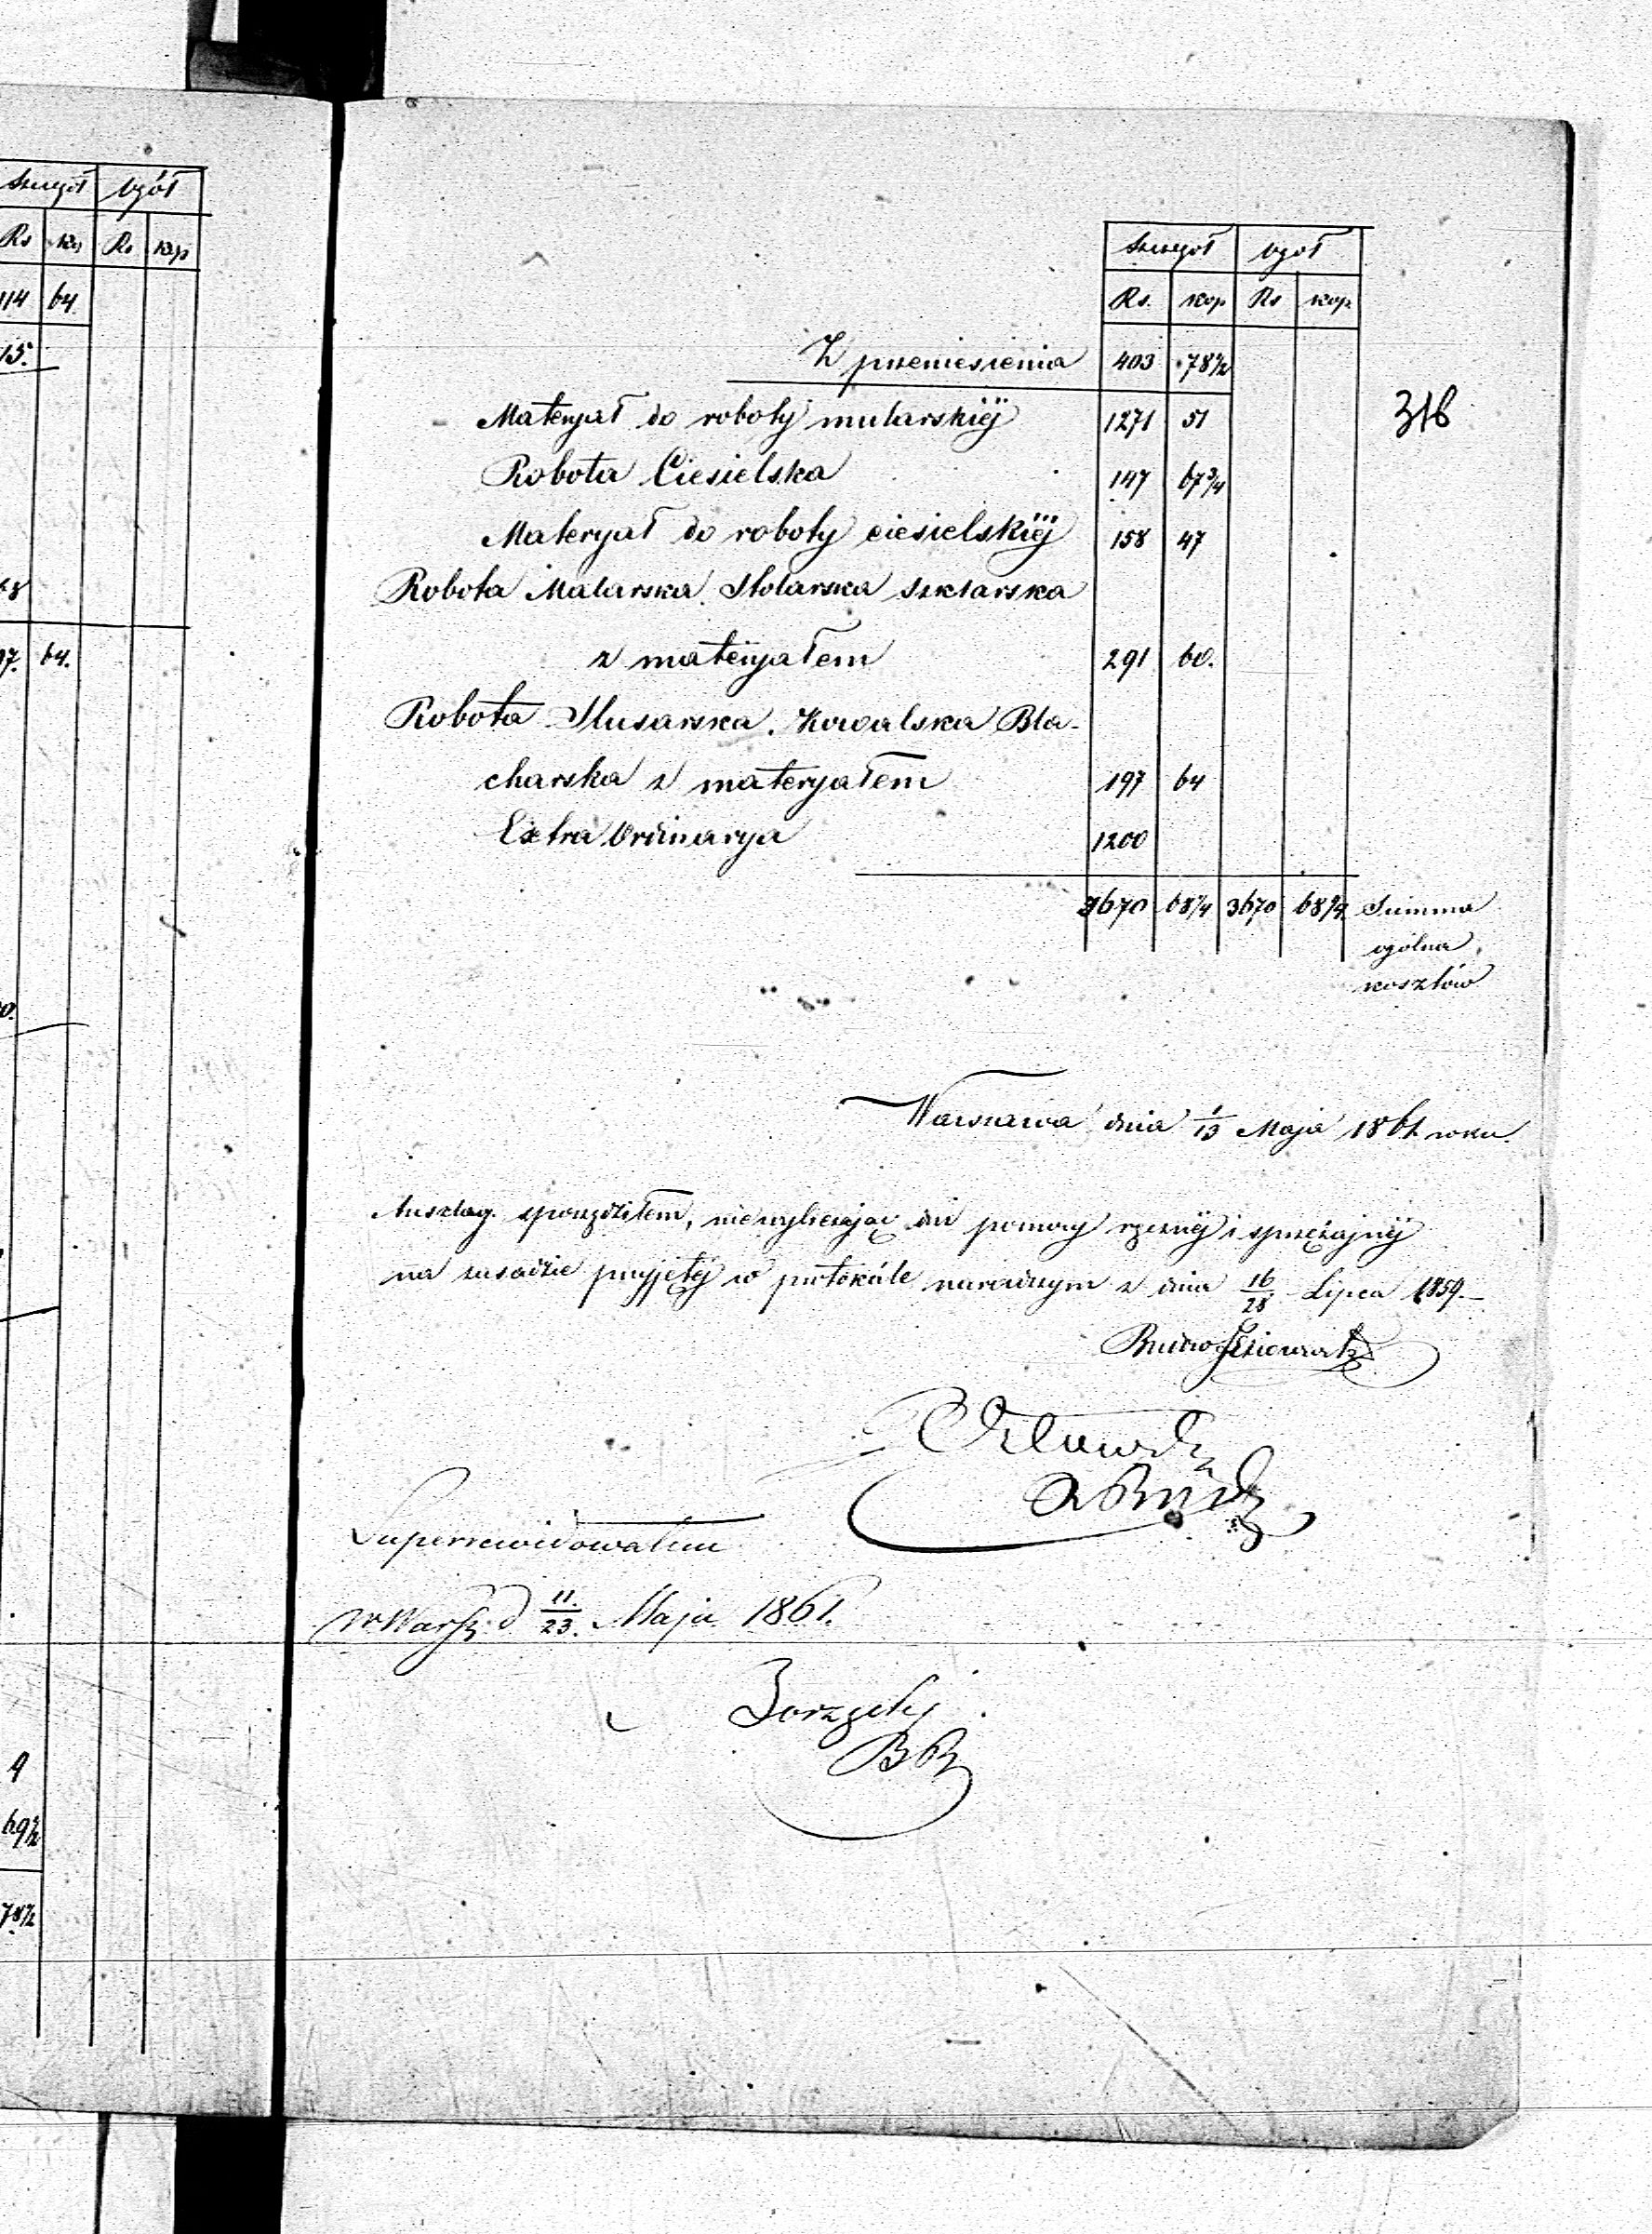 Szczegół Ogół
Rs kop Rs kop
114 64
15.
68
97. 64.
9
69½
78½
Szczegół Ogół
Rs. kop Rs kop.
316
Z przeniesienia 403 78½
Materyał do roboty mularskiéj 1271 51
Robota Ciesielska 147 67¾
Materyał do roboty ciesielskiéj 158 47
Robota Malarska. Stolarska Szklarska
z materyałem 291 60.
Robota Slusarska. Kowalska Bla-
charska z materyałem 197 64
Extra Ordinarya 1200
3670 68¼ 3670 68¼ Summa
ogólna
kosztów
Warszawa dnia 1/13 Maja 1861 roku.
Anszlag sporządziłem, niewyliczając dni pomocy ręcznéj i sprzężajnéj
na zasadzie przyjętéj w protokóle naradczym z dnia 16/28 Lipca 1859.—
Budow
Orłowski
Superrewidowałem
w Warsz. d 11./23. Maja 1861.
BB